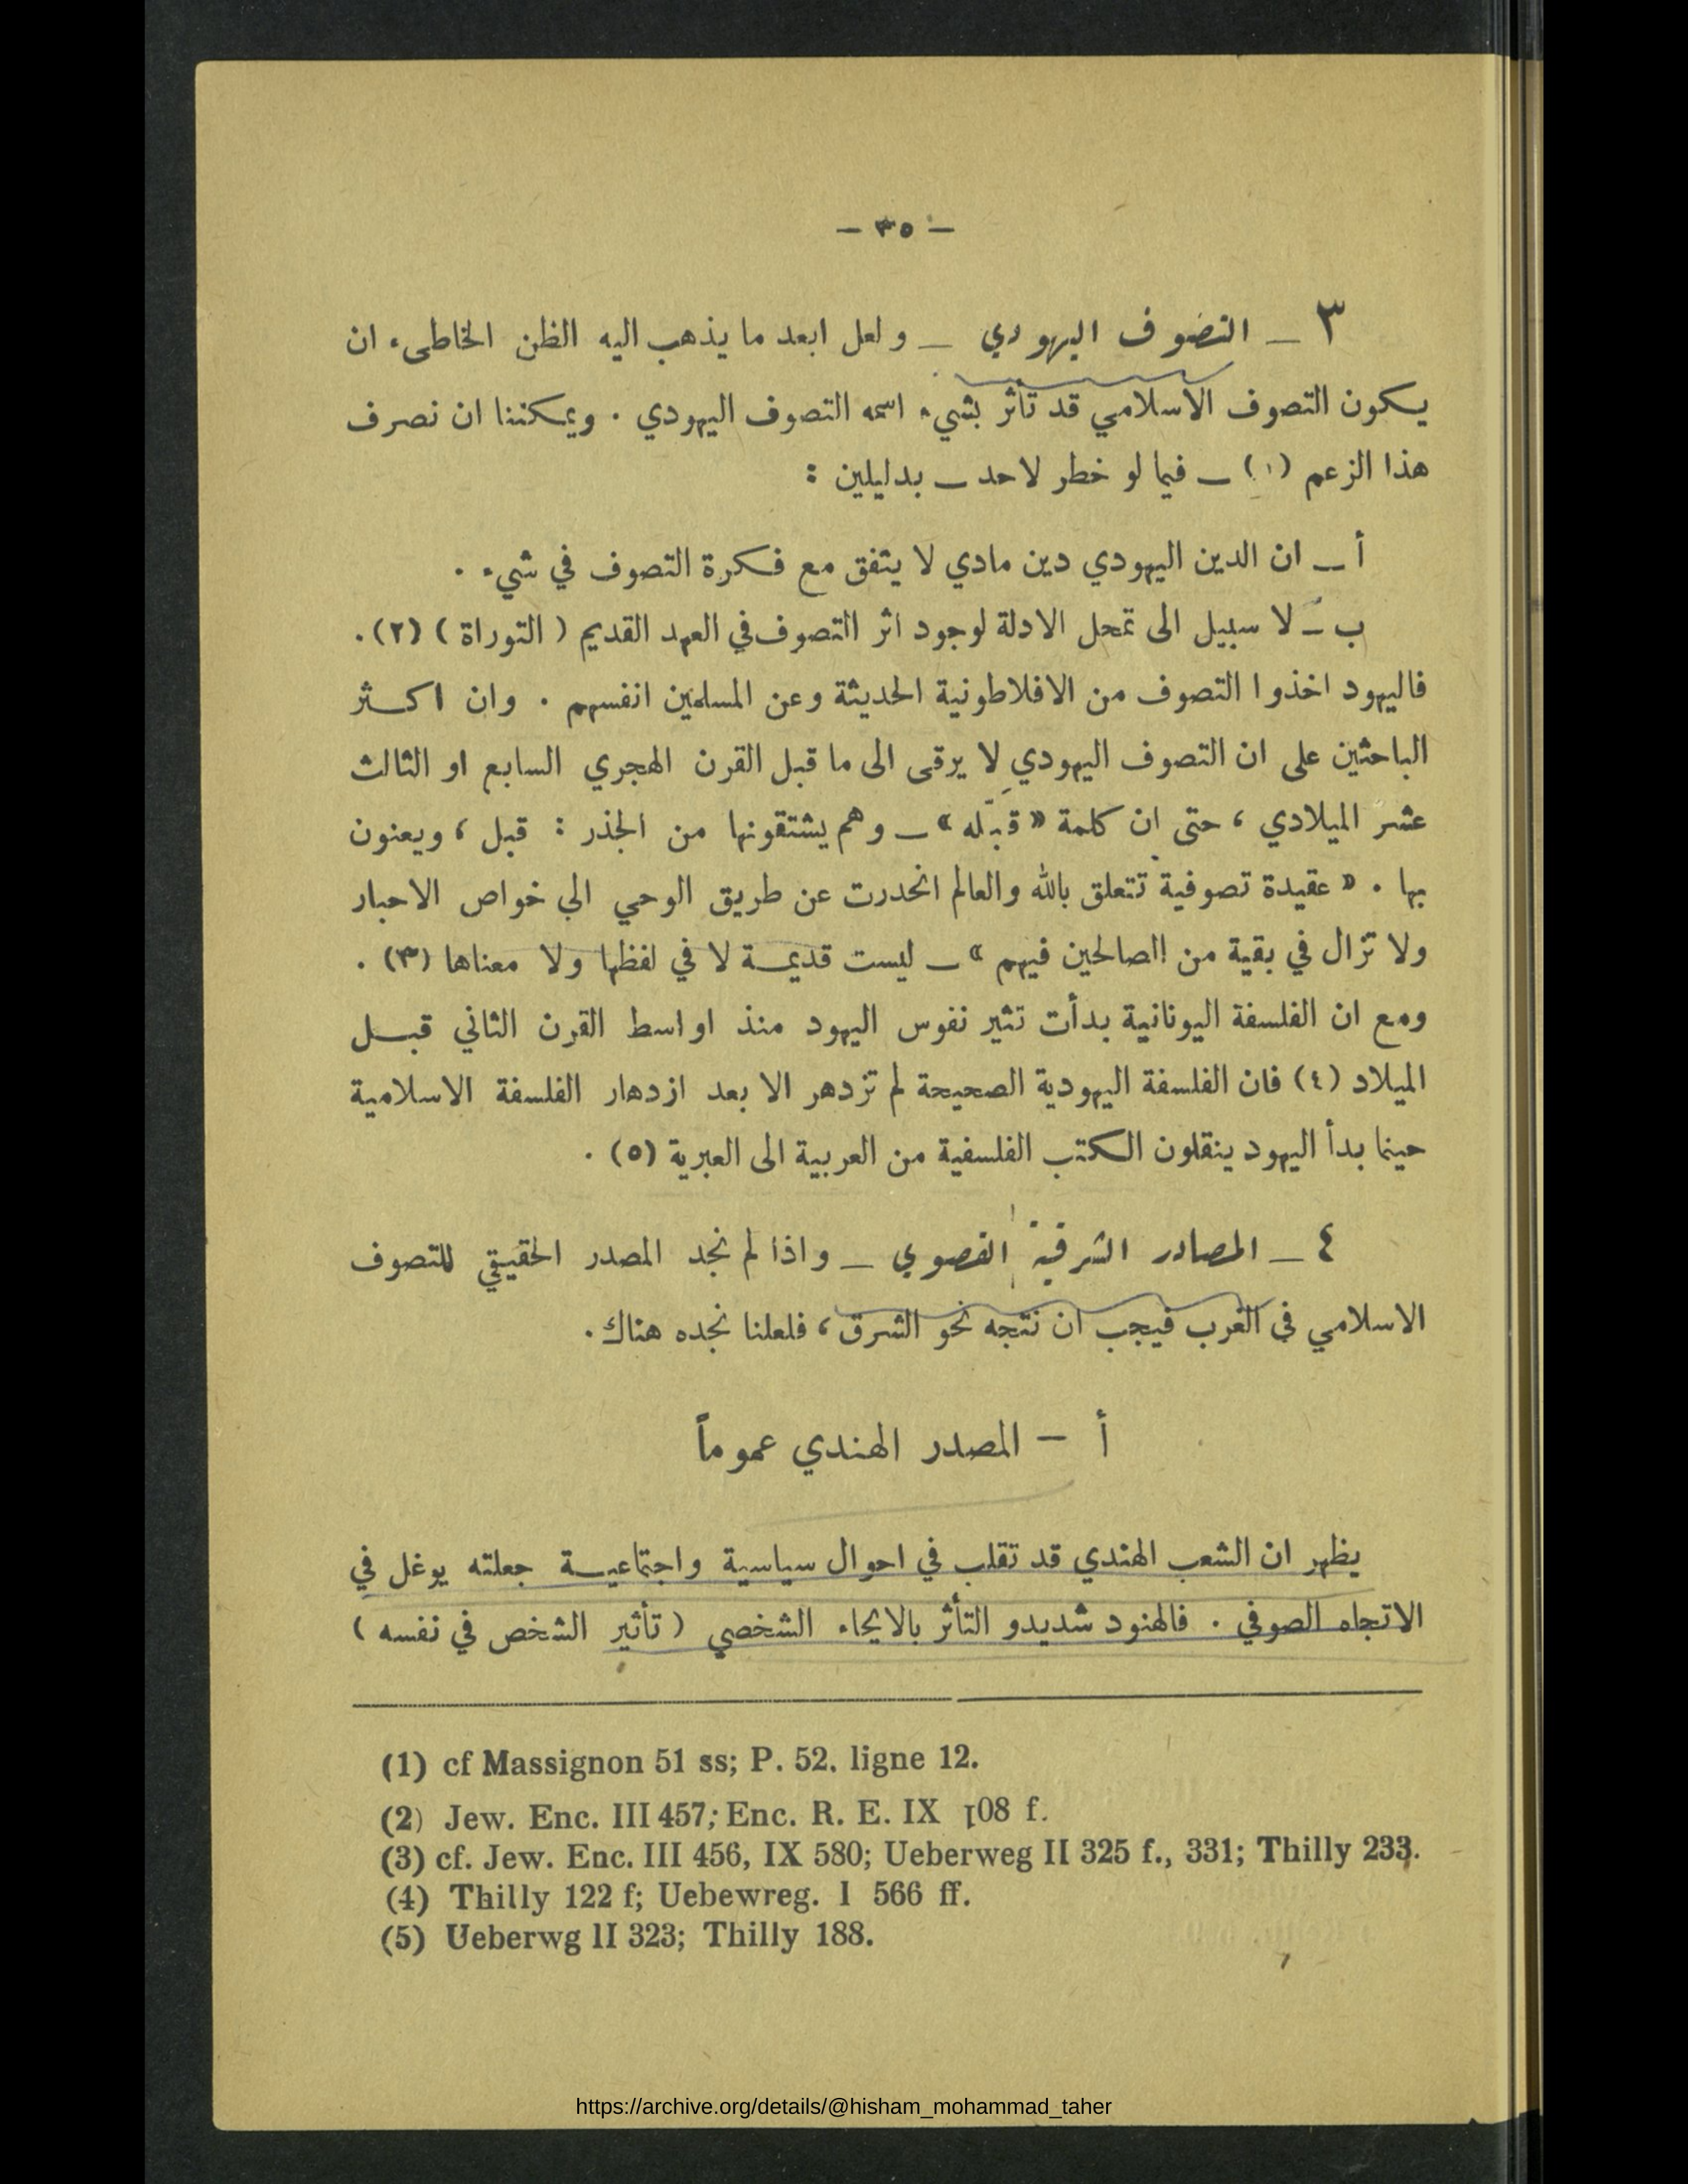 - ٣٥ -
٣ ـ التصوف اليهودي ـ ولعل ابعد ما يذهب اليه الظن الخاطىء ان
يكون التصوف الاسلامي قد تأثر بشيء اسمه التصوف اليهودي . ويمكننا ان نصرف
هذا الزعم (١) ـ فيما لو خطر لاحد ـ بدليلين :
أ ـ ان الدين اليهودي دين مادي لا يتفق مع فكرة التصوف في شيء .
ب ـ لا سبيل الى تمحل الادلة لوجود اثر التصوف في العهد القديم ( التوراة ) (٢) .
فاليهود اخذوا التصوف من الافلاطونية الحديثة وعن المسلمين انفسهم . وان اكثر
الباحثين على ان التصوف اليهودي لا يرقى الى ما قبل القرن الهجري السابع او الثالث
عشر الميلادي ، حتى ان كلمة « قبّله » ـ وهم يشتقونها من الجذر : قبل ، ويعنون
بها . « عقيدة تصوفية تتعلق بالله والعالم انحدرت عن طريق الوحي الى خواص الاحبار
ولا تزال في بقية من الصالحين فيهم » ـ ليست قديمة لا في لفظها ولا معناها (٣) .
ومع ان الفلسفة اليونانية بدأت تثير نفوس اليهود منذ اواسط القرن الثاني قبل
الميلاد (٤) فان الفلسفة اليهودية الصحيحة لم تزدهر الا بعد ازدهار الفلسفة الاسلامية
حينما بدأ اليهود ينقلون الكتب الفلسفية من العربية الى العبرية (٥) .
٤ ـ المصادر الشرقية القصوى ـ واذا لم نجد المصدر الحقيقي للتصوف
الاسلامي في الغرب فيجب ان نتجه نحو الشرق ، فلعلنا نجده هناك .
أ - المصدر الهندي عموماً
يظهر ان الشعب الهندي قد تقلب في احوال سياسية واجتماعية جعلته يوغل في
الاتجاه الصوفي . فالهنود شديدو التأثر بالايحاء الشخصي ( تأثير الشخص في نفسه )
(1) cf Massignon 51 ss; P. 52. ligne 12.
(2) Jew. Enc. III 457; Enc. R. E. IX 108 f.
(3) cf. Jew. Enc. III 456, IX 580; Ueberweg II 325 f., 331; Thilly 233.
(4) Thilly 122 f; Uebewreg. I 566 ff.
(5) Ueberwg II 323; Thilly 188.
https://archive.org/details/@hisham_mohammad_taher